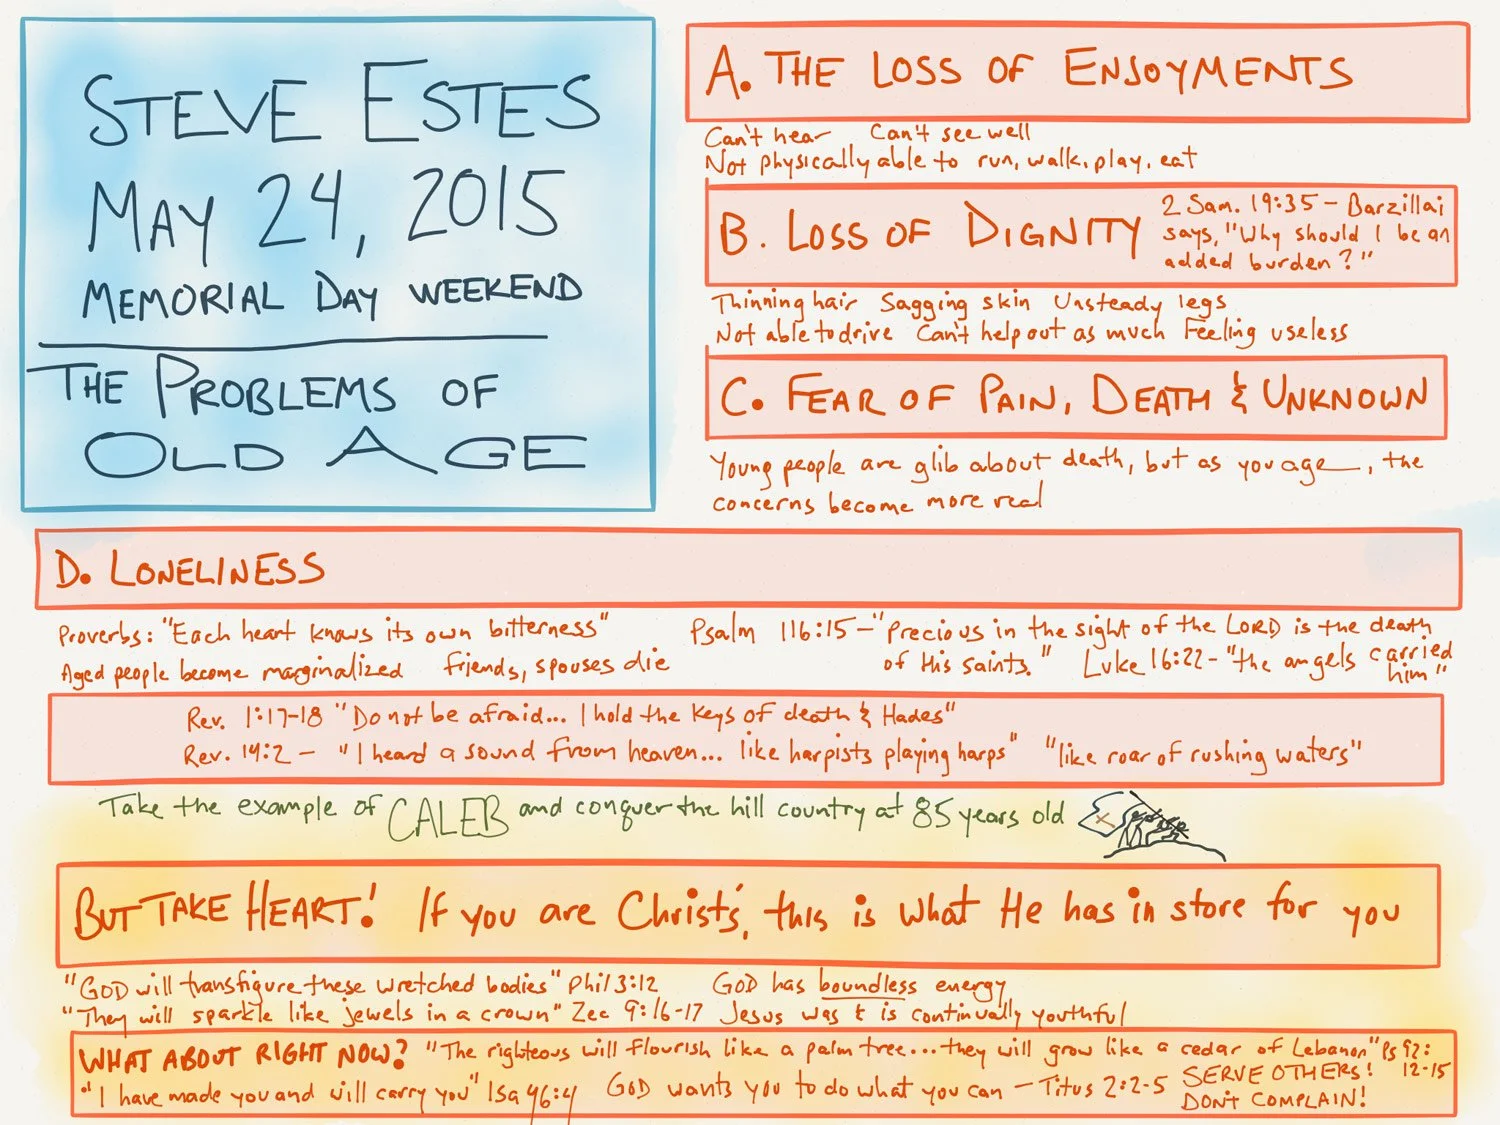 STEVE ESTES
MAY 24, 2015
MEMORIAL DAY WEEKEND
THE PROBLEMS OF
OLD AGE
A. THE LOSS OF ENJOYMENTS
Can't hear Can't see well
Not physically able to run, walk, play, eat
B. LOSS OF DIGNITY
2 Sam. 19:35 – Barzillai
says, "Why should I be an
added burden?"
Thinning hair Sagging skin Unsteady legs
Not able to drive Can't help out as much Feeling useless
C. FEAR OF PAIN, DEATH & UNKNOWN
Young people are glib about death, but as you age, the
concerns become more real
D. LONELINESS
Proverbs: "Each heart knows its own bitterness"
Aged people become marginalized friends, spouses die
Psalm 116:15 – "Precious in the sight of the LORD is the death
of His saints." Luke 16:22 – "the angels carried
him"
Rev. 1:17-18 "Do not be afraid... I hold the keys of death & Hades"
Rev. 14:2 – "I heard a sound from heaven... like harpists playing harps" "like roar of rushing waters"
Take the example of CALEB and conquer the hill country at 85 years old
BUT TAKE HEART! If you are Christs', this is what He has in store for you
"GOD will transfigure these wretched bodies" Phil 3:12 GOD has boundless energy
"They will sparkle like jewels in a crown" Zec 9:16-17 Jesus was & is continually youthful
WHAT ABOUT RIGHT NOW? "The righteous will flourish like a palm tree... they will grow like a cedar of Lebanon" Ps 92:
12-15
"I have made you and will carry you" Isa 46:4 GOD wants you to do what you can – Titus 2:2-5
SERVE OTHERS!
DON'T COMPLAIN!